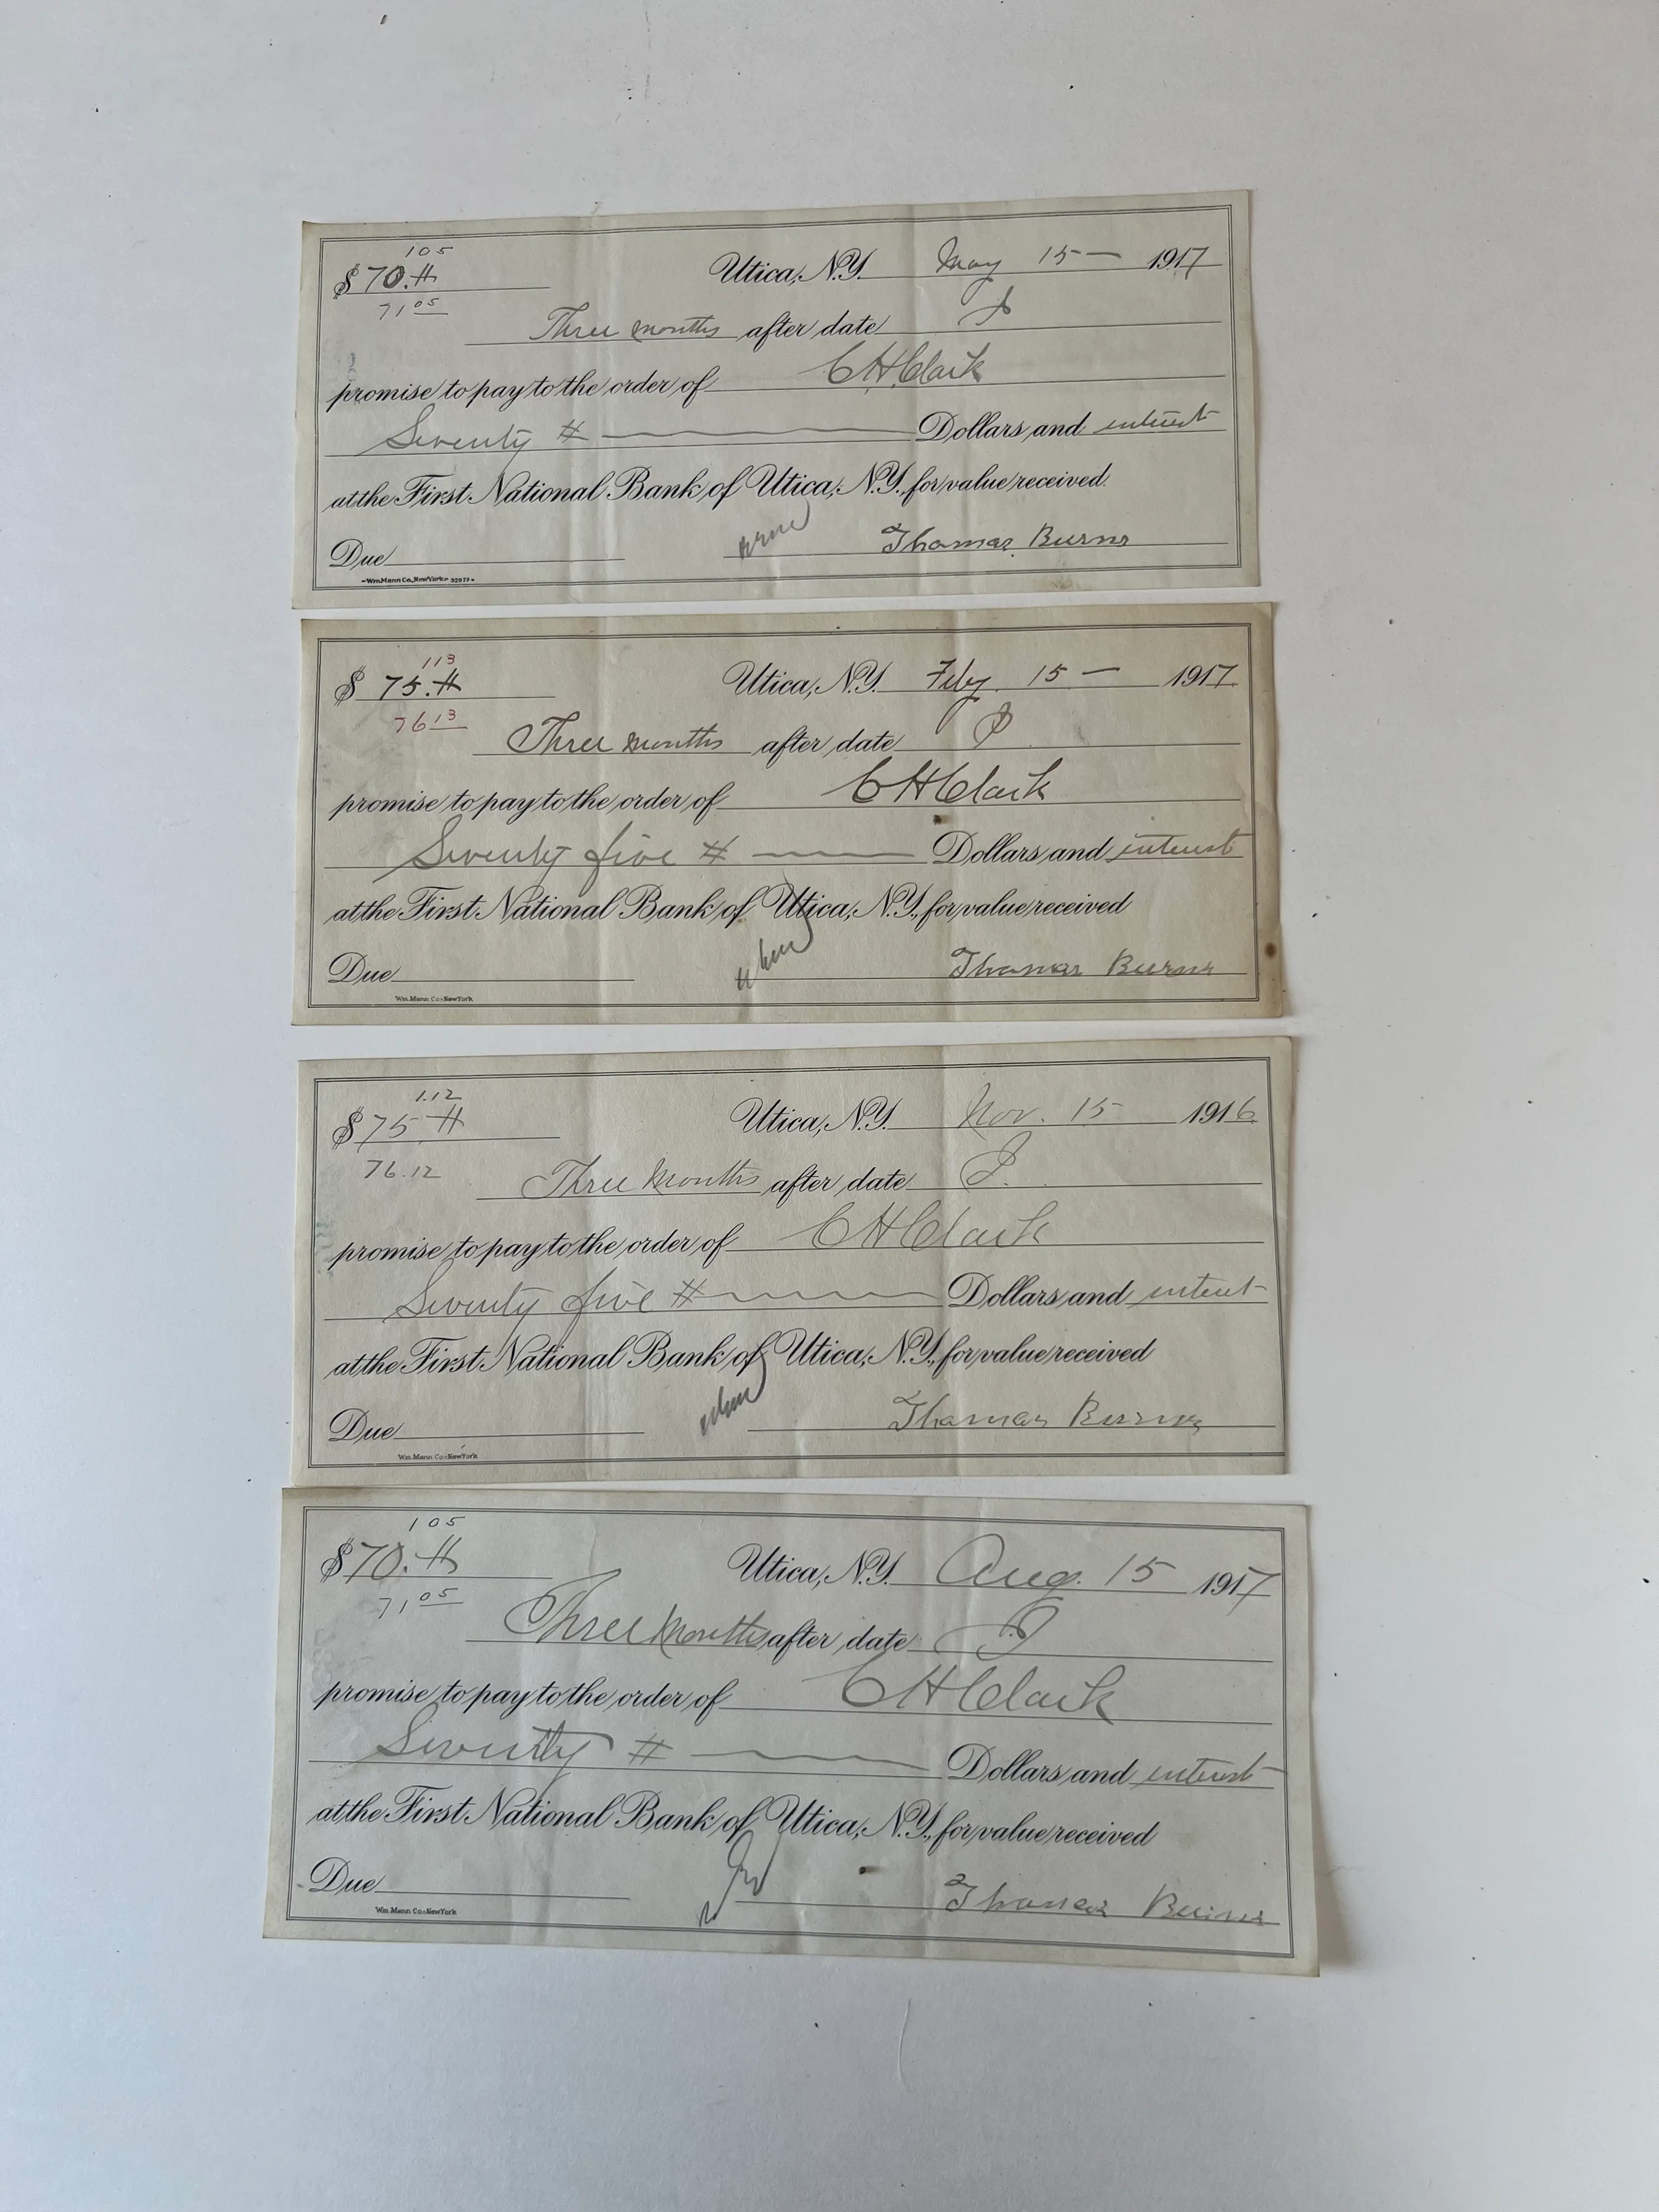 105
$ 70.#
Utica, N.Y. May 15 — 1917
71 05
Three months after date I
promise to pay to the order of C H Clark
Seventy # Dollars and interest
at the First National Bank of Utica, N.Y., for value received.
Due Thomas Burns
Wm. Mann Co., New York
113
$ 75.# Utica, N.Y. Feby. 15 — 1917
76 13
Three months after date I
promise to pay to the order of C H Clark
Seventy five # Dollars and interest
at the First National Bank of Utica, N.Y., for value received
Due Thomas Burns
Wm. Mann Co. New York
1.12
$ 75 # Utica, N.Y. Nov. 15 1916
76.12
Three Months after date I.
promise to pay to the order of C H Clark
Seventy five # Dollars and interest
at the First National Bank of Utica, N.Y., for value received
Due Thomas Burns
Wm. Mann Co. New York
105
$ 70.# Utica, N.Y. Aug. 15 1917
71 05
Three Months after date I
promise to pay to the order of C H Clark
Seventy # Dollars and interest
at the First National Bank of Utica, N.Y., for value received
Due Thomas Burns
Wm. Mann Co. New York